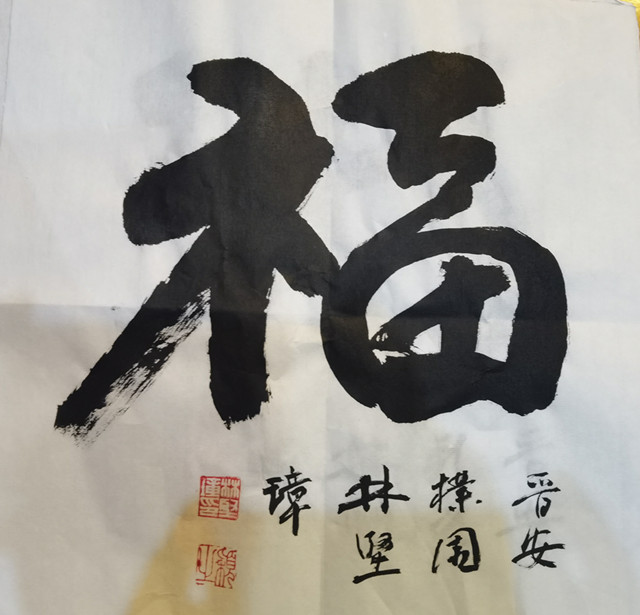 福
晋安
樸園
林坚
璋